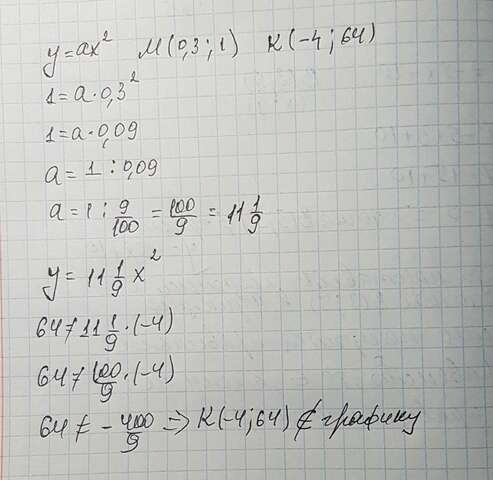 y=ax² M(0,3;1) K(-4;64)
1=a·0,3²
1=a·0,09
a=1:0,09
a=1:9/100=100/9=11 1/9
y=11 1/9 x²
64≠11 1/9·(-4)
64≠100/9·(-4)
64≠-400/9⇒K(-4;64)∉графику